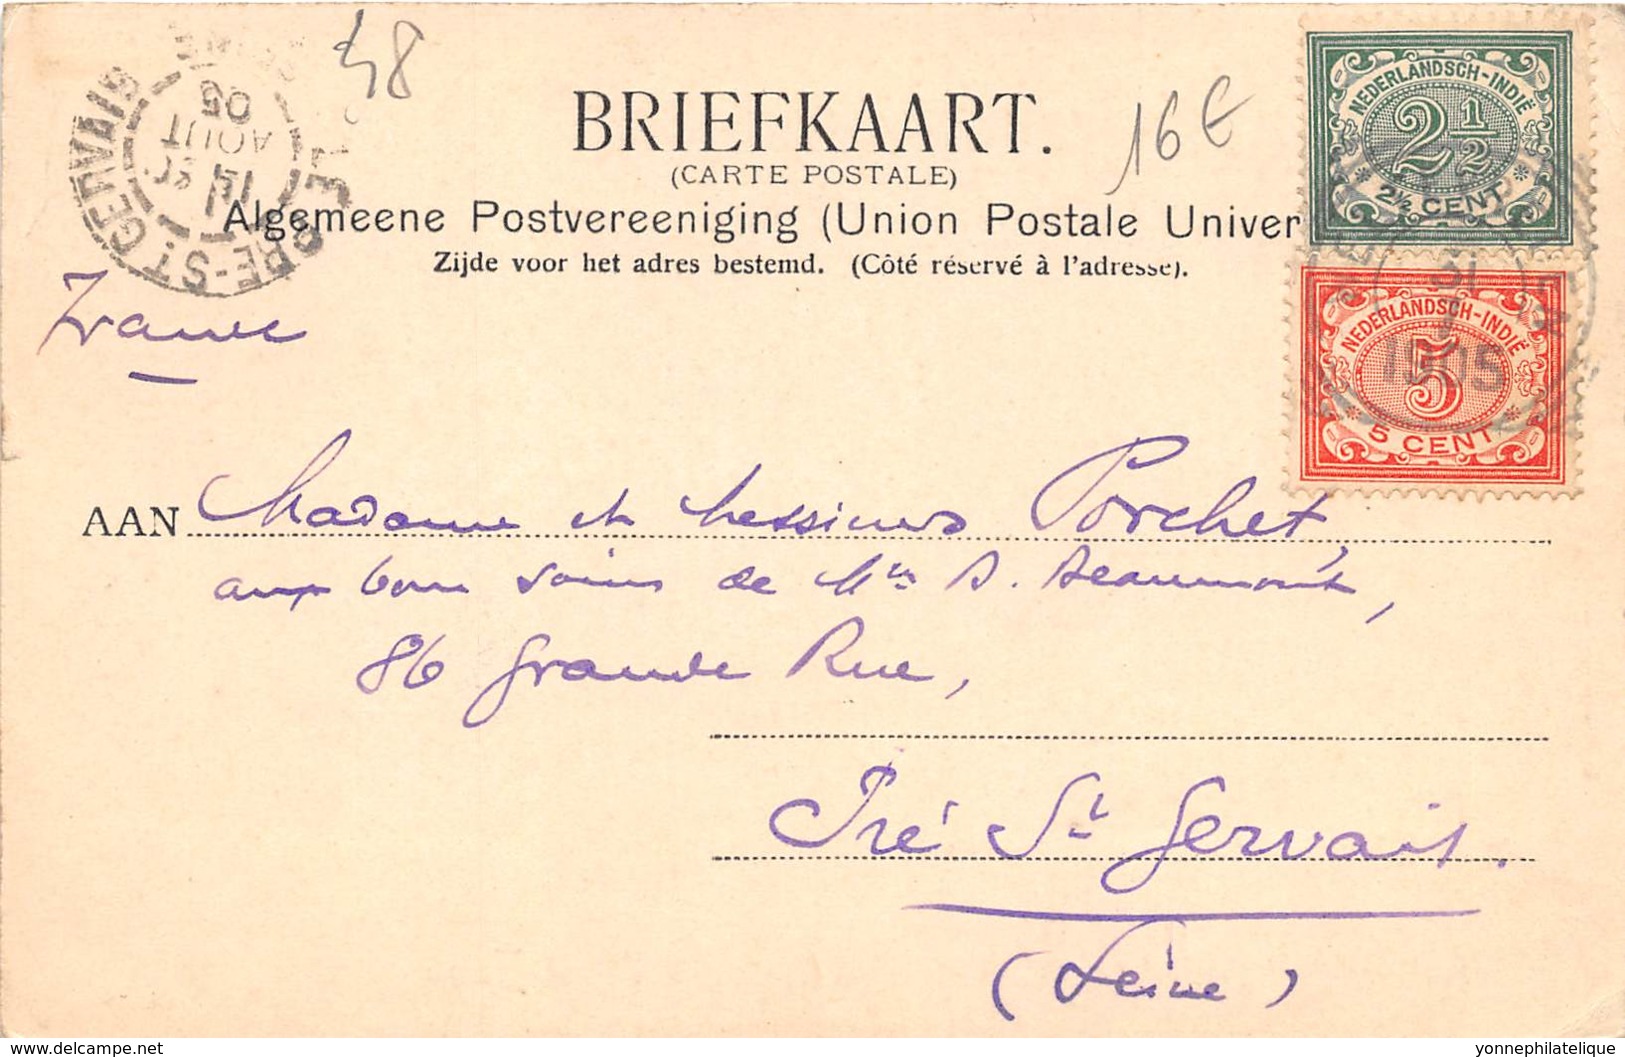 48
BRIEFKAART.
16€
(CARTE POSTALE)
Algemeene Postvereeniging (Union Postale Univer
Zijde voor het adres bestemd. (Côté réservé à l'adresse).
NEDERLANDSCH-INDIË
2½
2½ CENT
NEDERLANDSCH-INDIË
5
5 CENT
31
7
1905
PRE-ST. GERVAIS
AOUT
05
France
AAN Madame et Messieurs Porchet,
aux bons soins de Mrs A. Beaumont,
86 Grande Rue,
Pré St Gervais.
(Seine)
yonnephilatelique